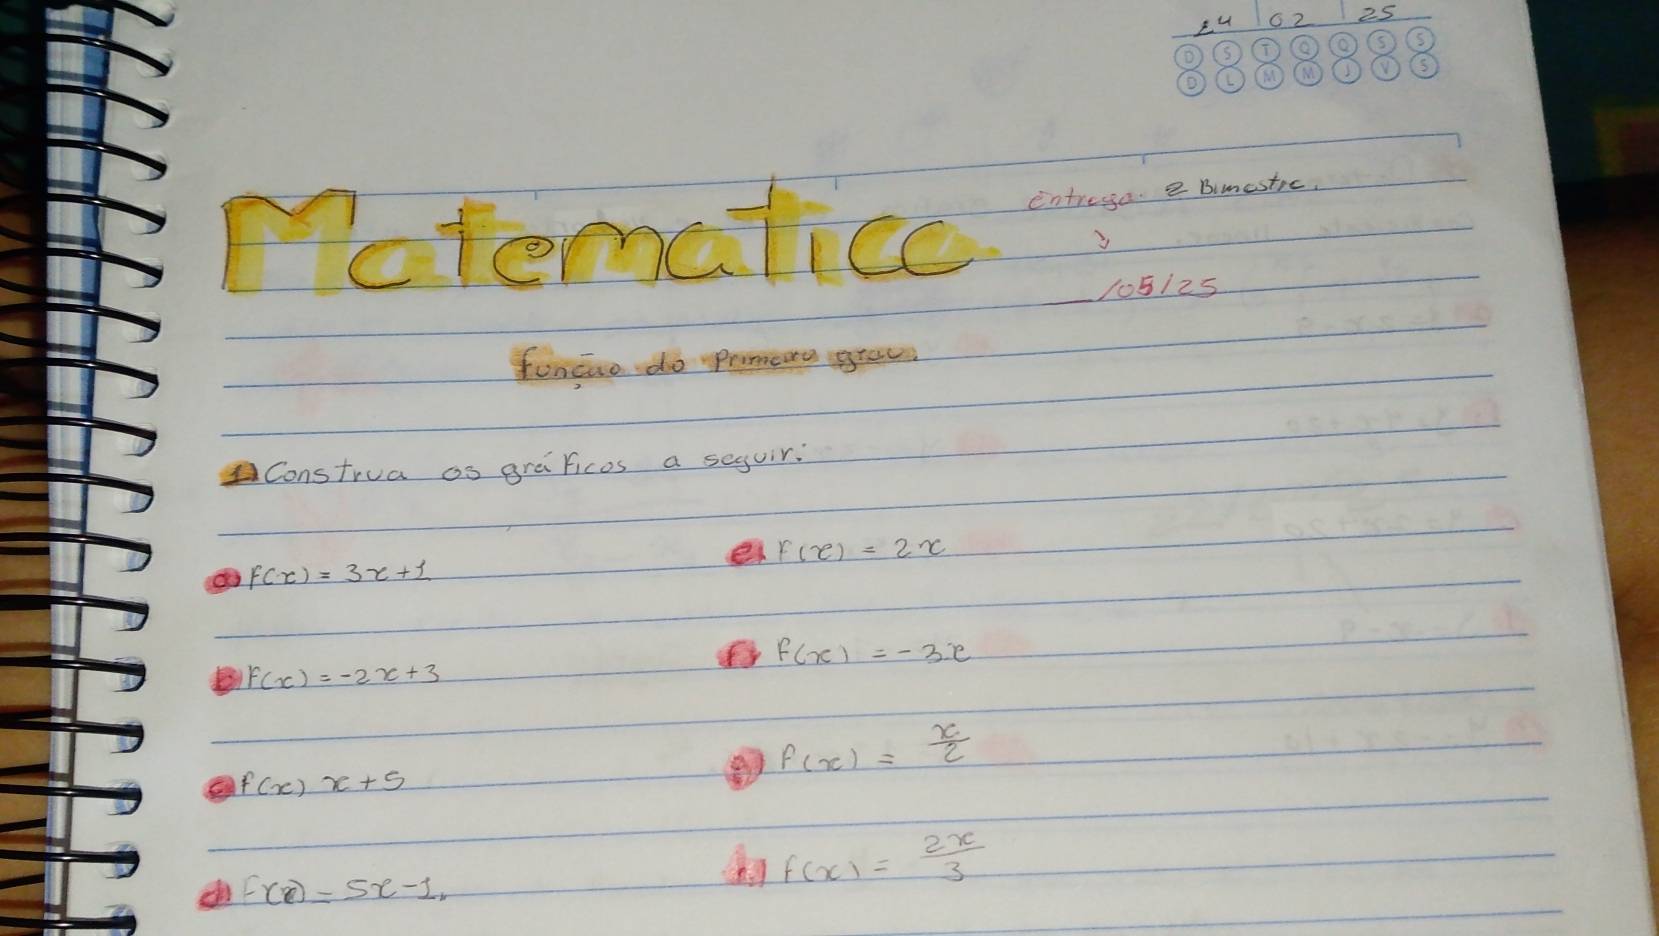 24 02 25
D S T Q Q S S
D L M M J V S
Matematica
entrega 2 Bimestre.
__/05/25
função do Primeiro grau.
1) Construa os gráficos a seguir:
a) f(x) = 3x+1
e) f(x) = 2x
b) f(x) = -2x+3
f) f(x) = -3x
c) f(x) x+5
g) f(x) = x/2
d) f(x) = 5x-1.
h) f(x) = 2x/3